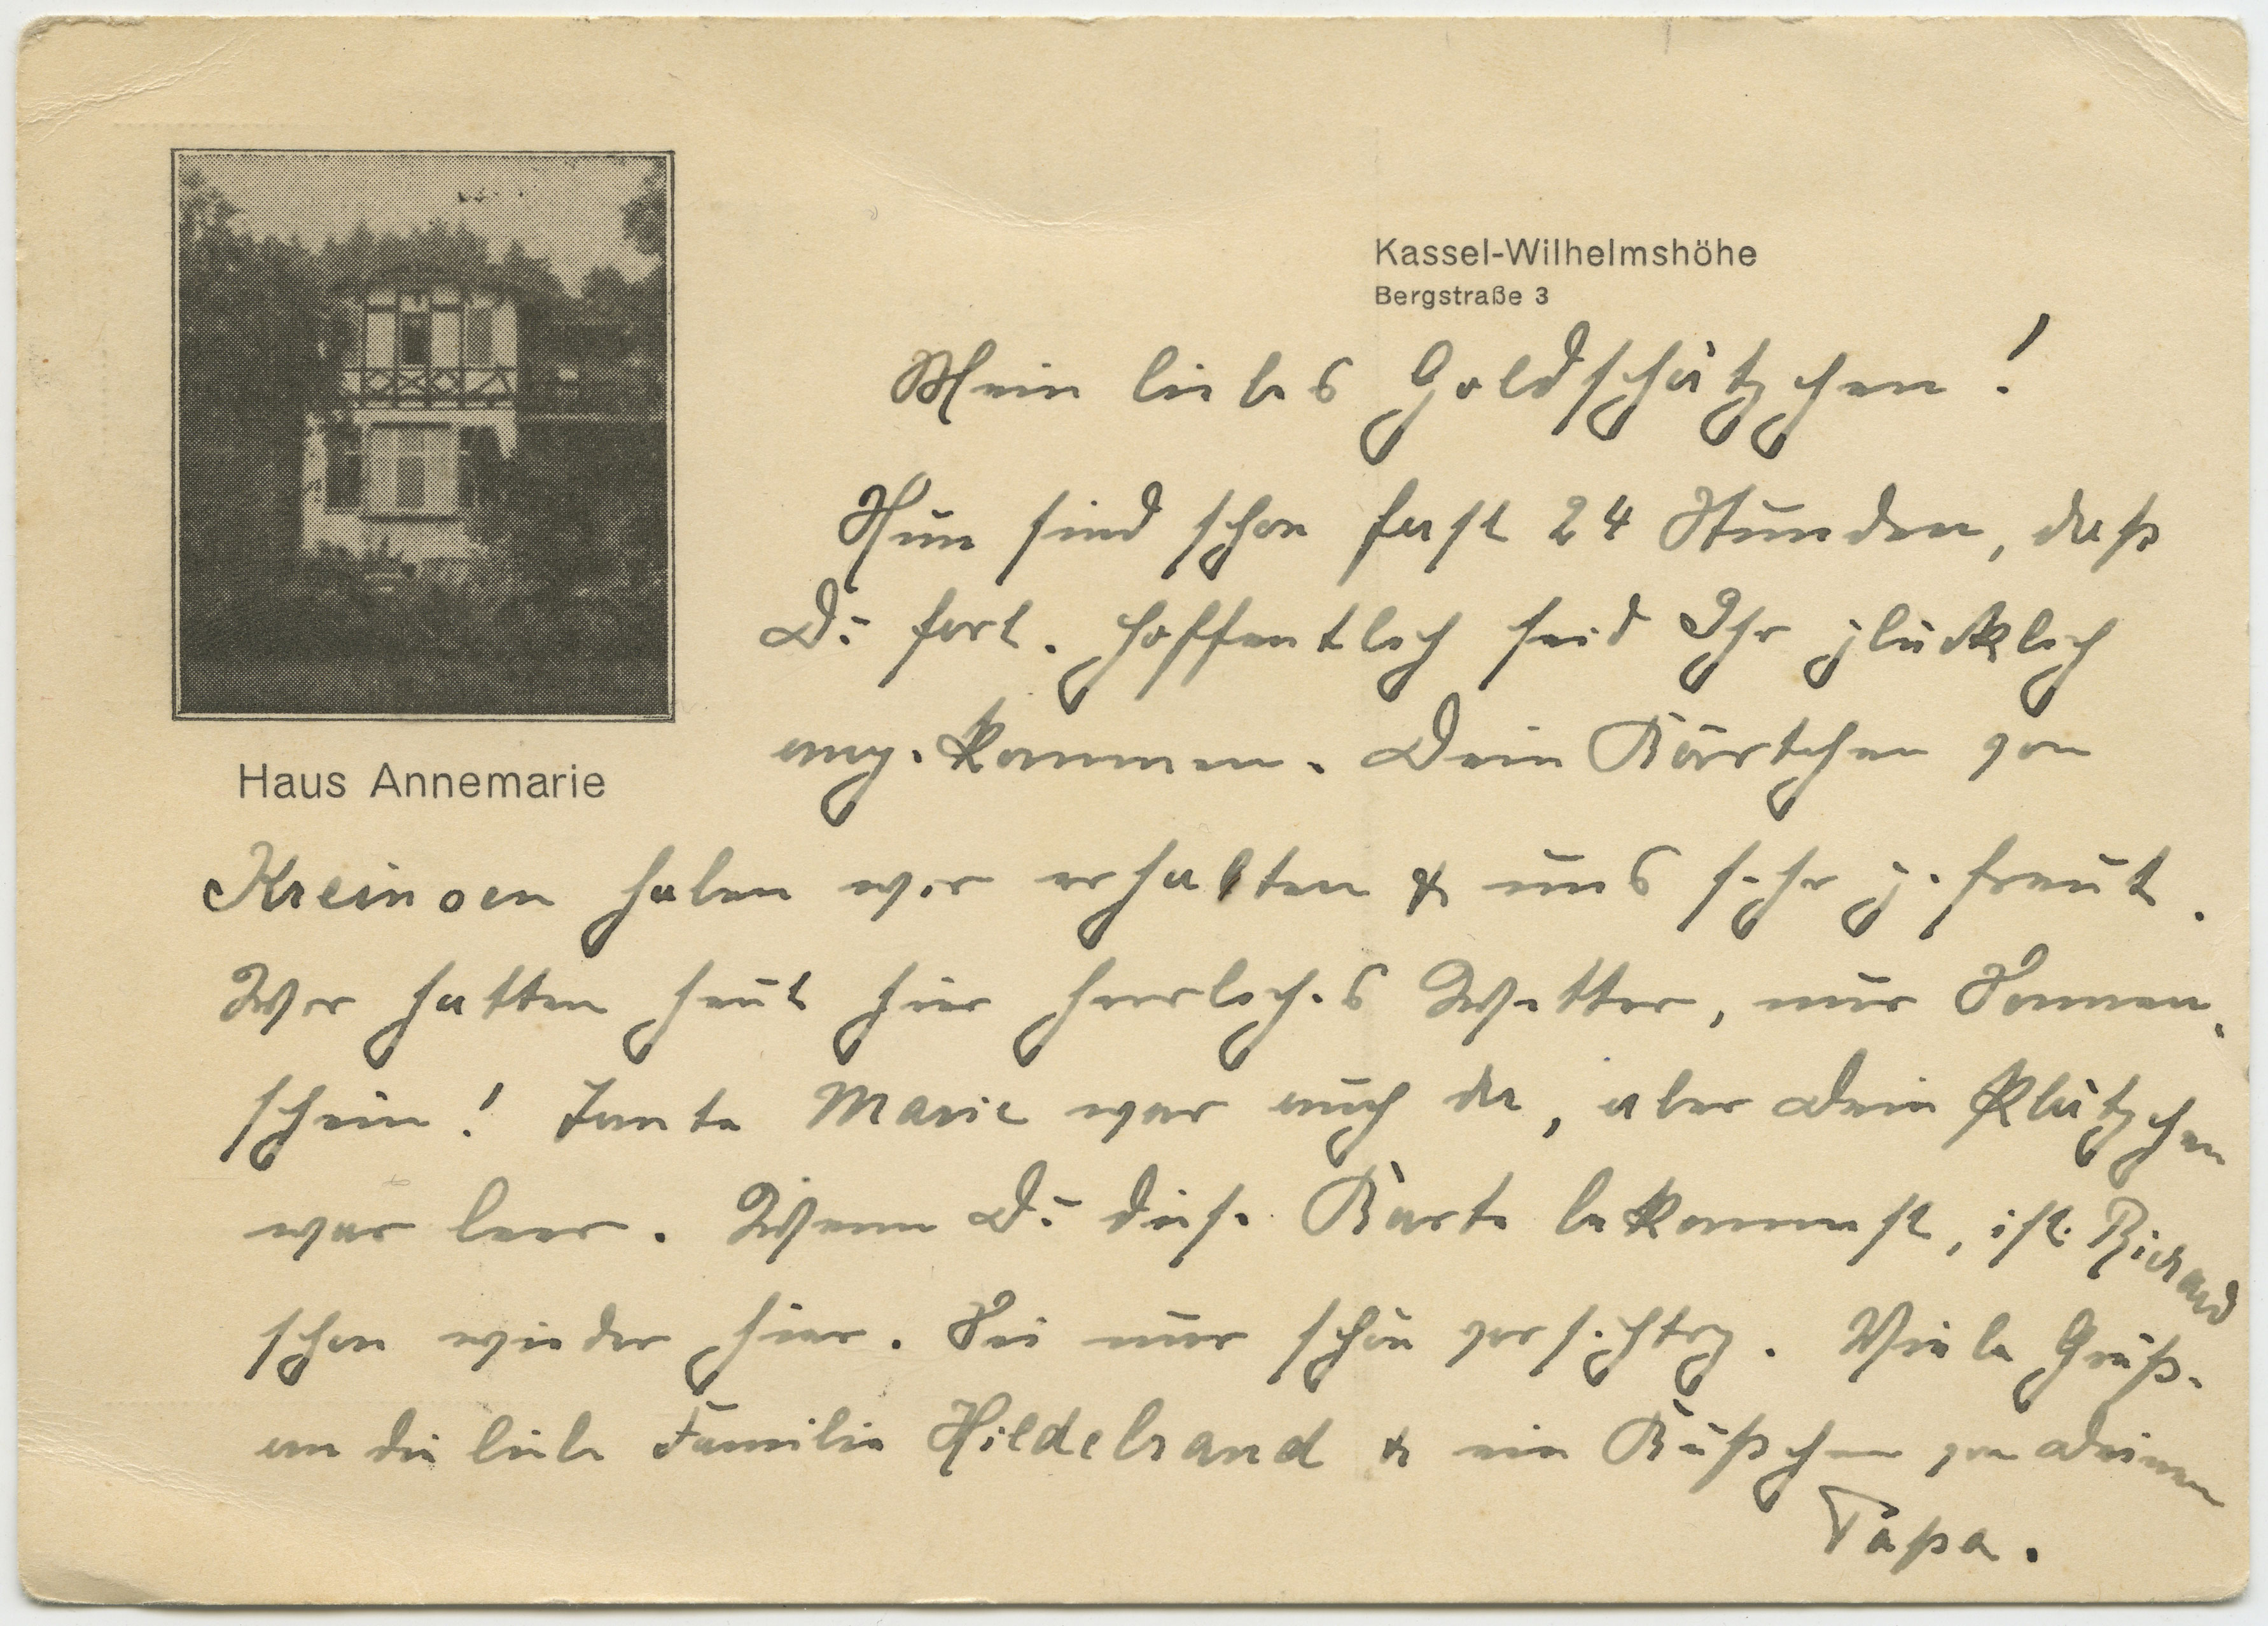 Kassel-Wilhelmshöhe
Bergstraße 3
Haus Annemarie
Mein liebes Goldschätzchen!
Nun sind schon fast 24 Stunden, daß
Du fort. Hoffentlich seid Ihr glücklich
angekommen. Dein Kärtchen von
Kreinsen haben wir erhalten & uns sehr gefreut.
Wir hatten heut hier herrliches Wetter, nur Sonnen-
schein! Tante Marie war auch da, aber Dein Plätzchen
war leer. Wenn Du diese Karte bekommst, ist Richard
schon wieder hier. Sei nur schön vorsichtig. Viele Grüße
an die liebe Familie Hildebrand & ein Küßchen von Deinem
Papa.